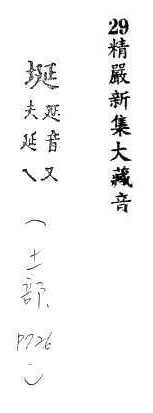 29精嚴新集大藏音
埏
延音又
夫延乀
(土部, P726)